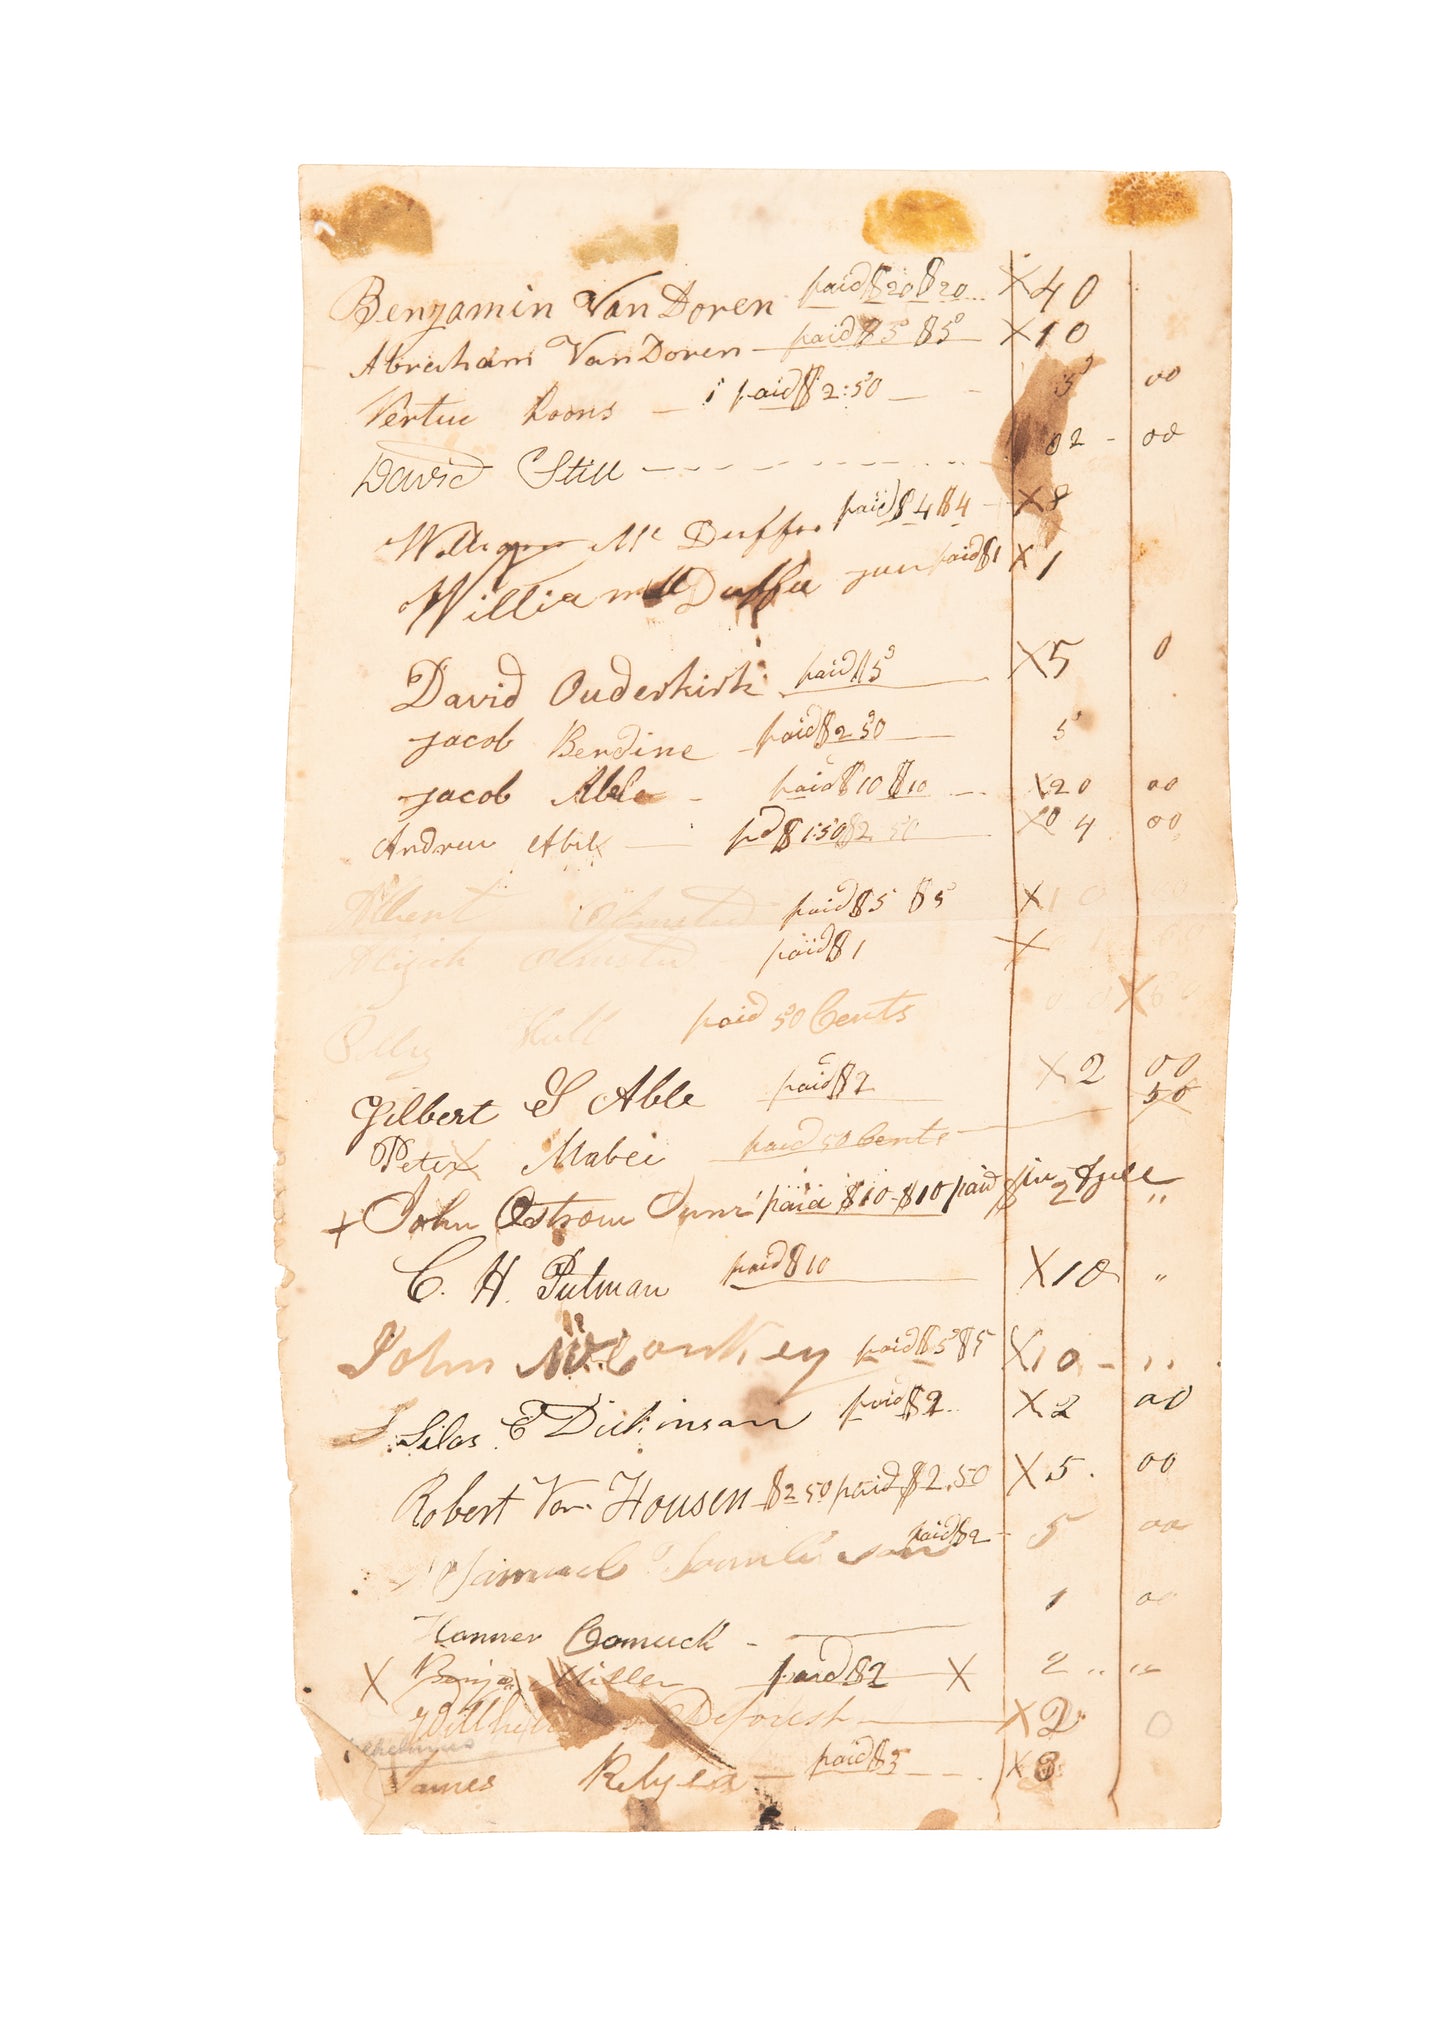 Benjamin Van Doren paid $20 $20 X 40
Abraham Van Doren paid $5 $5 X 10
Vertue Loons paid $2:50 5 00
David Still 02 - 00
William Mc Duffee paid $4 $4 X 8
William Mc Duffee jun paid $1 X 1
David Ouderkirk paid $5 X 5 0
jacob Berdine paid $2 50 5
jacob Able paid $10 $10 X 20 00
Andrew Abel pd $1:50 $2 50 X 04 00
Albert Olmsted paid $5 $5 X 10 00
Elijah Olmsted paid $1 X
Polly Hull paid 50 Cents X
Gilbert S Able paid $2 X 2 00
Peter Mabei paid 50 Cents 50
+ John Ostrom Junr paid $10 - $10 paid in full 2 "
C. H. Putman paid $10 X 10 "
John McConkey paid $5 $5 X 10 - "
J Silas E Dickinson paid $2 X 2 00
Robert Van Housen $2 50 paid $2.50 X 5. 00
Samuel paid $2 - 5 00
Hanner Comuck - 1 00
X Benja Miller paid $2 X 2 " "
Deforest X 2 0
James Relyea paid $3 X 3